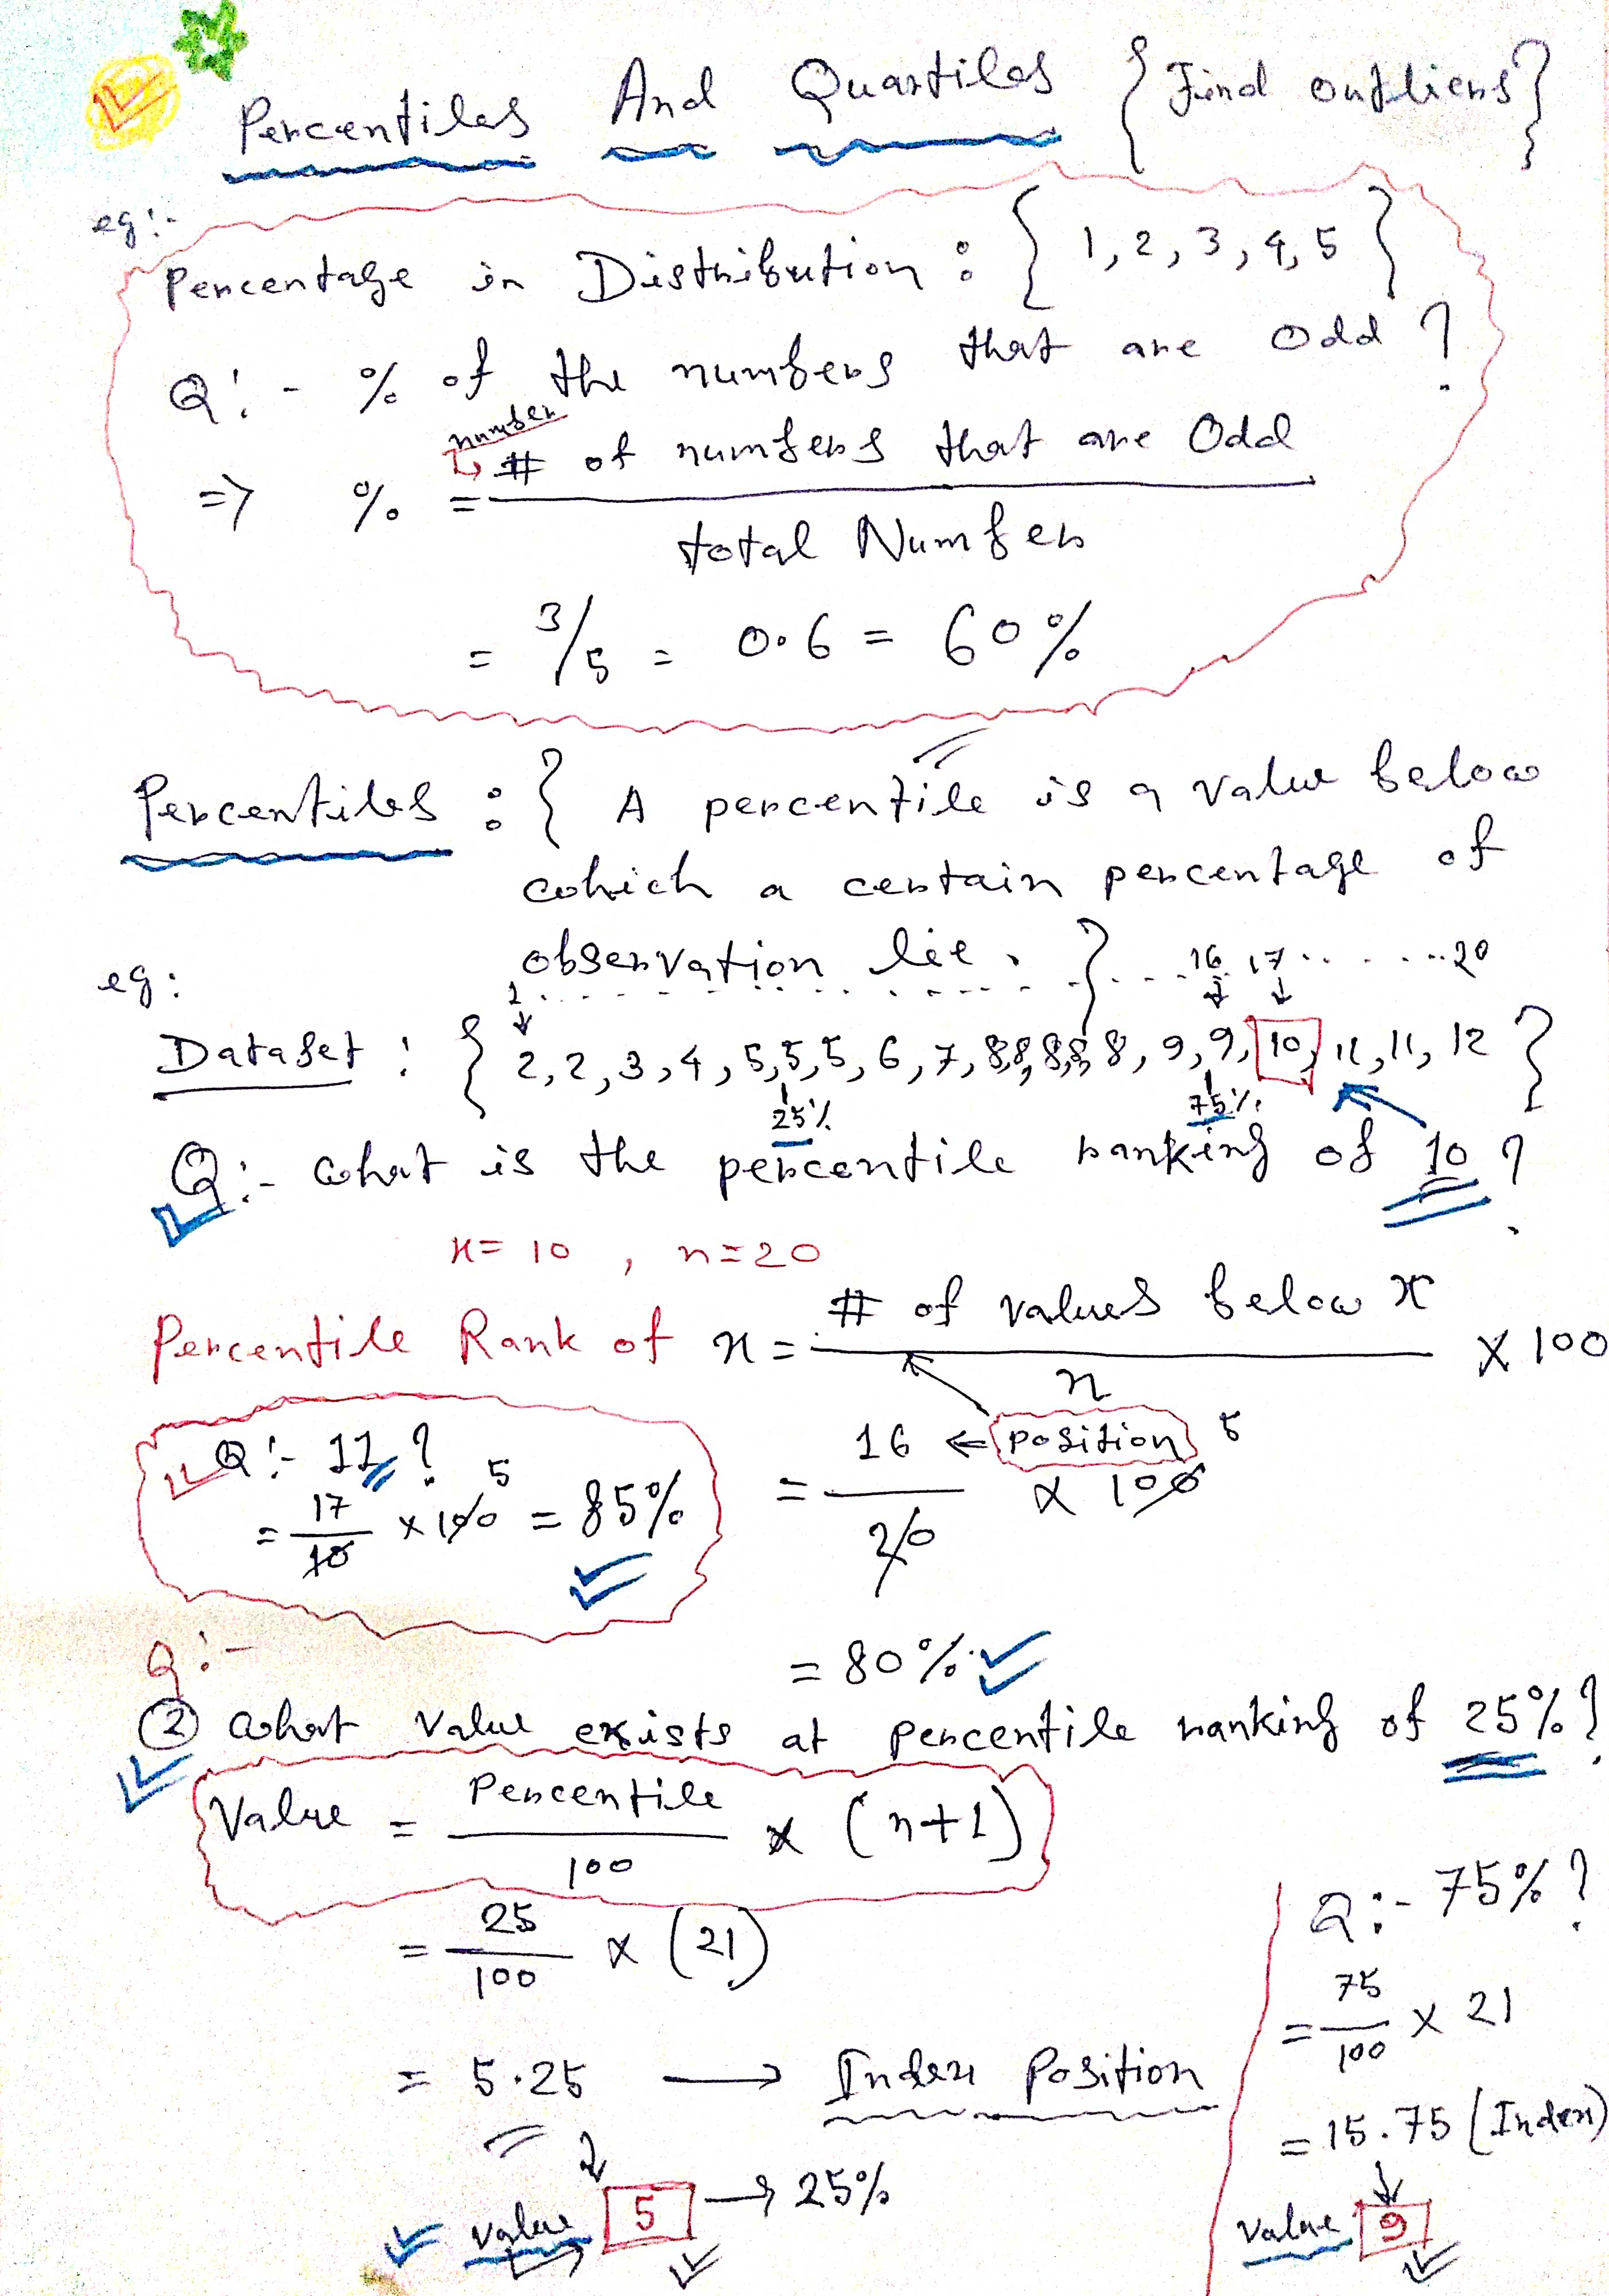 Percentiles And Quartiles { Find outliers }
eg:-
Percentage in Distribution : { 1, 2, 3, 4, 5 }
Q:- % of the numbers that are odd ?
number
=> % = # of numbers that are Odd
total Number
= 3/5 = 0.6 = 60%
Percentiles : { A percentile is a value below
which a certain percentage of
observation lie. }
eg:
1 ... 16 17 ... 20
Dataset : { 2, 2, 3, 4, 5, 5, 5, 6, 7, 8, 8, 8, 8, 8, 9, 9, 10, 11, 11, 12 }
25% 75%
Q:- what is the percentile ranking of 10 ?
x = 10 , n = 20
Percentile Rank of x = # of values below x
n
x 100
= 16 ← position 5
20
x 100
= 80%
Q:- 11 ?
= 17
10
x 100 5 = 85%
Q:-
② what value exists at percentile ranking of 25% ?
Value = Percentile
100
x (n+1)
= 25
100
x (21)
= 5.25 → Index Position
value 5 → 25%
Q:- 75% ?
= 75
100
x 21
= 15.75 (Index)
value 9